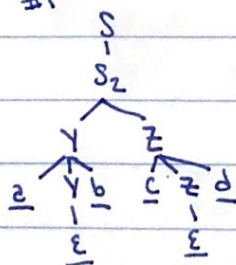 S
S₂
Y Z
a Y b c Z d
ε ε